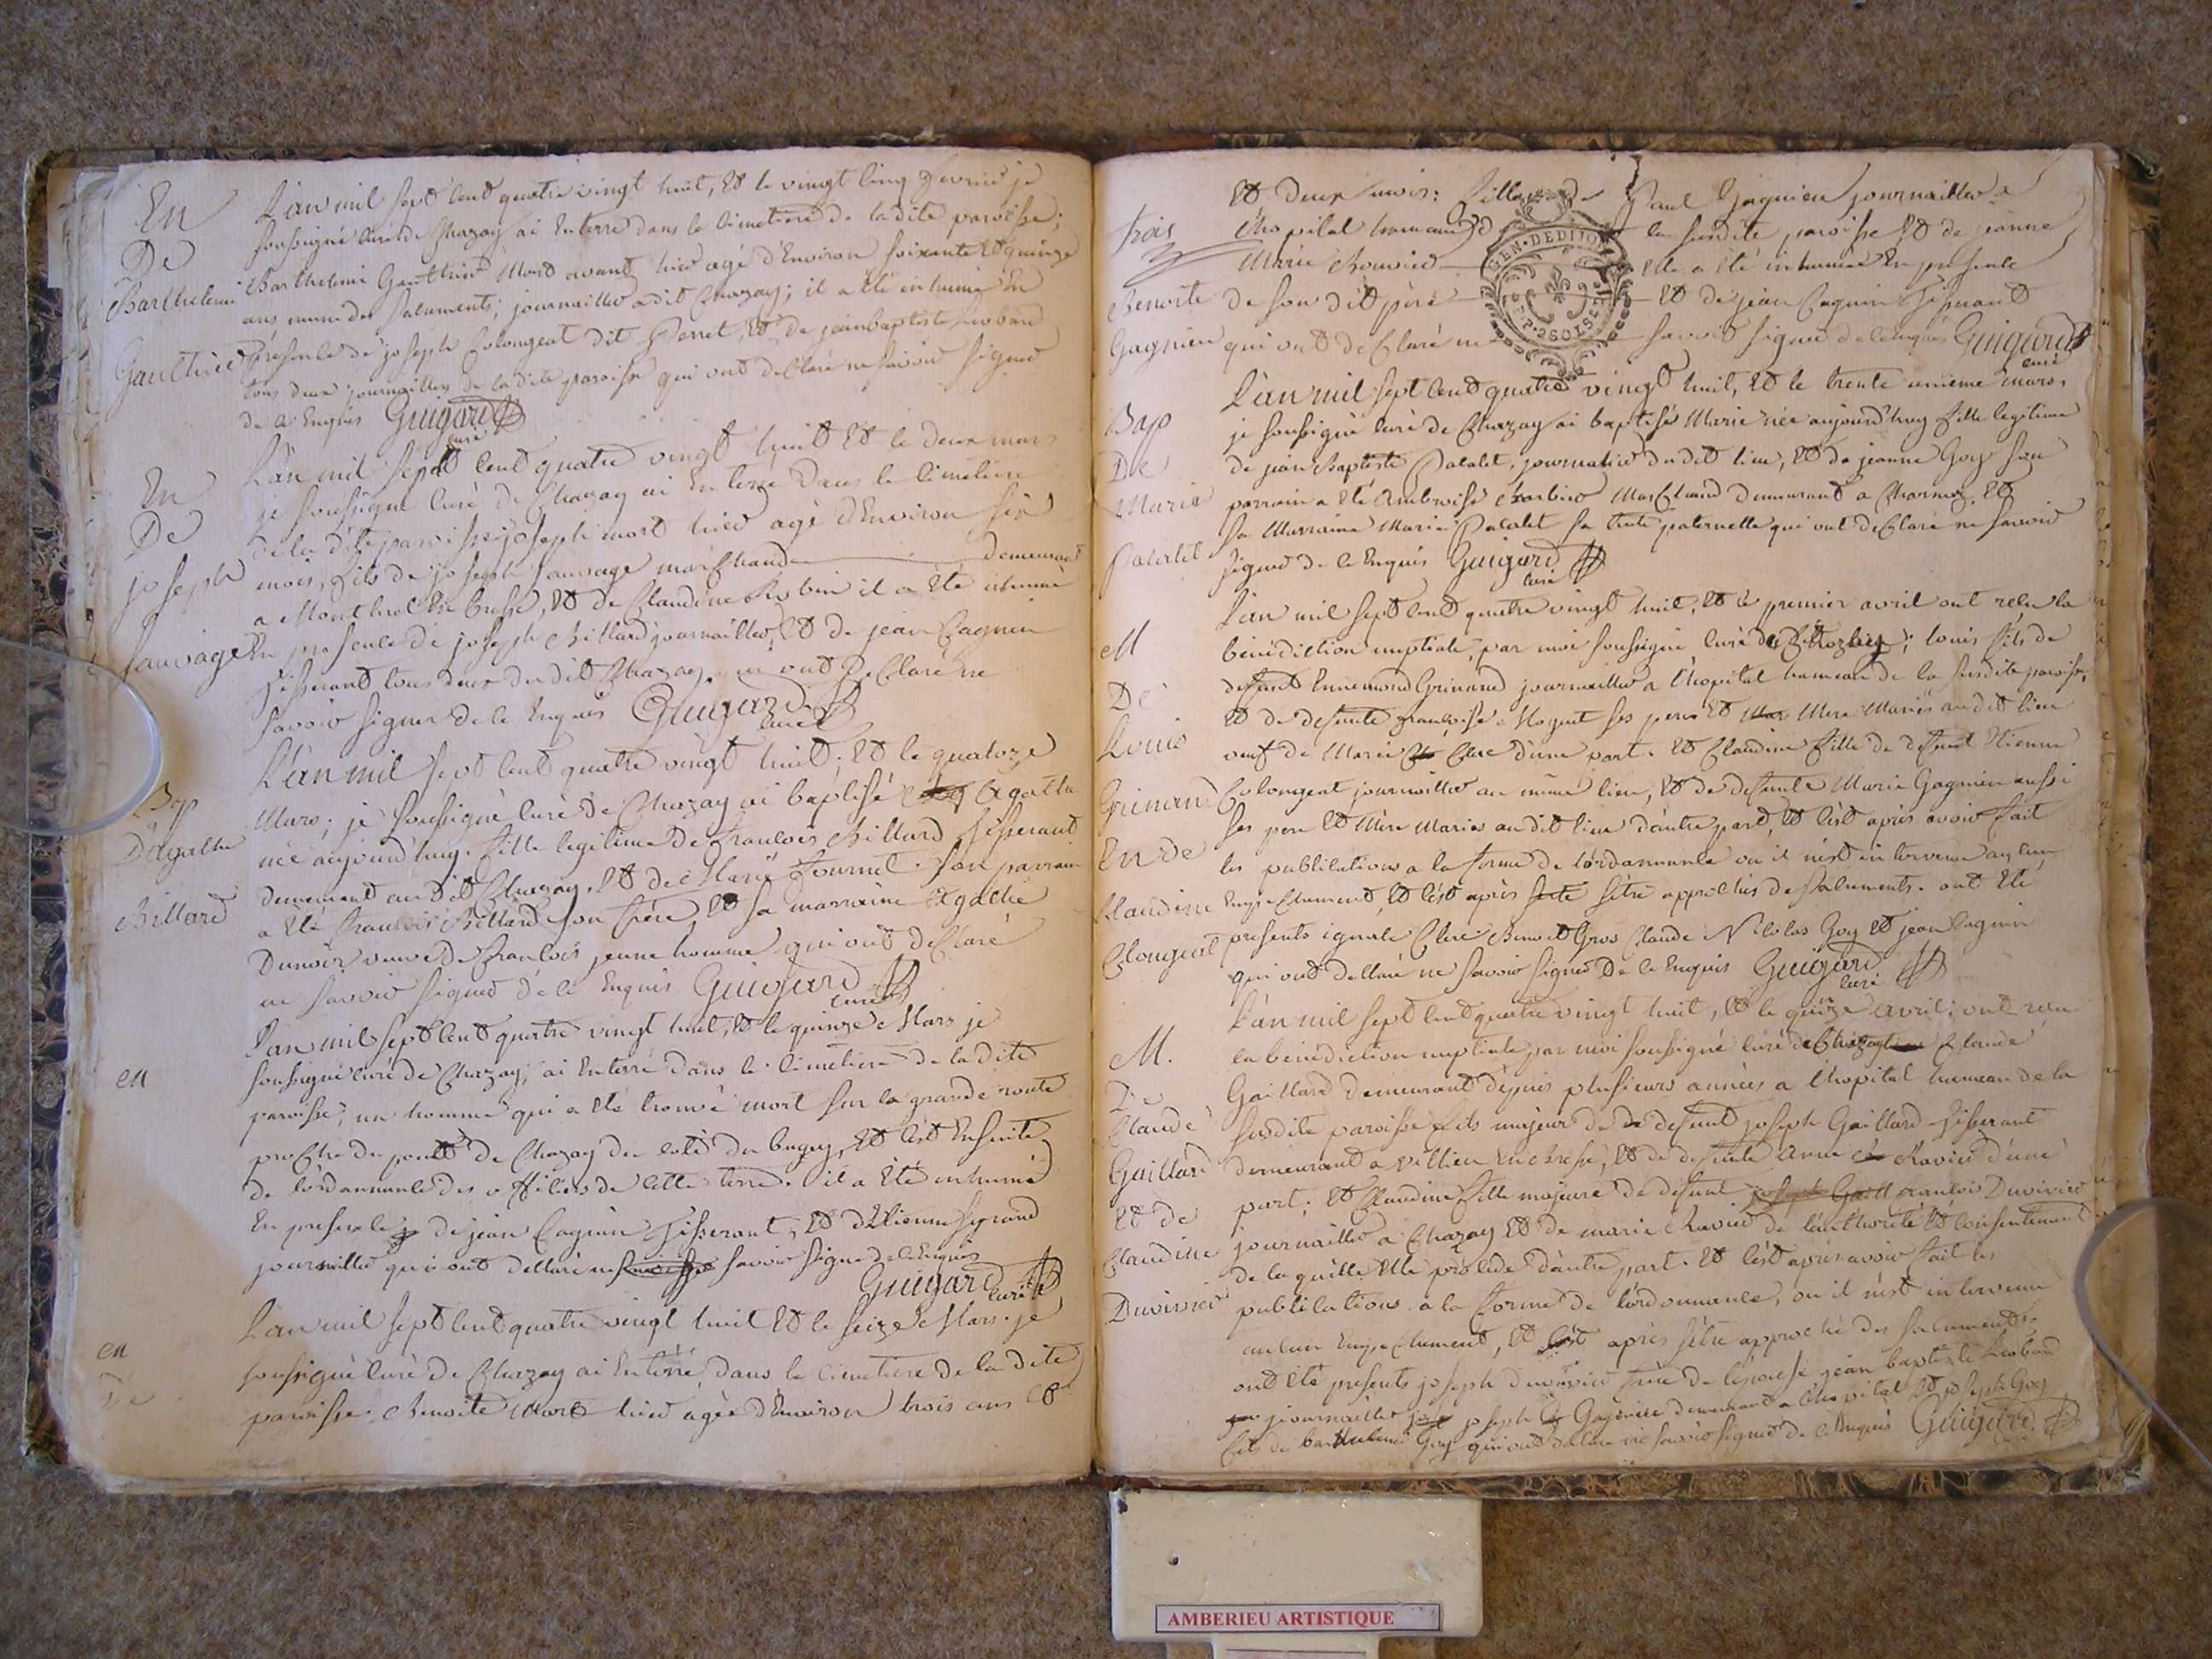 En
De
Barthelemi
Gauthier
L'an mil sept cent quatre vingt huit, et le vingt cinq fevrier je
soussigné curé de Chazay ai enterré dans le cimetiere de la dite paroisse;
Barthelemi Gauthier mort avant hier agé d'environ soixante et quinze
ans muni des sacuments; journaillier a dit Chazay; il a été inhumé en
presence de joseph Colongeat dit Perret, et de jean baptiste
tous deux journailliers de la dite paroisse qui ont declaré ne savoir signer
de ce enquis Guigard
curé
En
De
joseph
sauvage
L'an mil sept cent quatre vingt huit et le deux mars
je soussigné curé de Chazay ai enterré dans le cimetiere
de la dite paroisse joseph mort hier agé d'environ six
mois, fils de joseph sauvage marchand demeurant
a Montluel en bresse, et de Claudine Robin il a été inhumé
en presence de joseph Billard journaillier, et de jean Cagnin
tisserant tous deux du dit Chazay qui ont declaré ne
savoir signer de ce enquis Guigard
curé
Bap
D'agathe
Billard
L'an mil sept cent quatre vingt huit, et le quatorze
Mars; je soussigné curé de Chazay ai baptisé Agathe
née aujourd'huy fille legitime de francois Billard tisserant
demeurant au dit Chazay, et de Marie fournet. son parrain
a été francois Billard son frere, et sa marraine Agathe
Dunoir veuve de francois jeune homme qui ont declaré
ne savoir signer de ce enquis Guigard
curé
en
L'an mil sept cent quatre vingt huit, et le quinze Mars je
soussigné curé de Chazay, ai enterré dans le cimetiere de la dite
paroisse, un homme qui a été trouvé mort sur la grande route
proche du pont de Chazay du coté du bugey, et c'est ensuite
de l'ordonnance des officiers de cette terre. il a été inhumé
en presence de jean Cagnin tisserant, et d'Etienne
journaillier qui ont declaré ne savoir signer de ce enquis
Guigard curé
en
De
L'an mil sept cent quatre vingt huit et le seize Mars. je
soussigné curé de Chazay ai enterré dans le cimetiere de la dite
paroisse Benoite morte hier agée d'environ trois ans et
trois
Benoite
Gagnieu
et deux mois: fille de Paul Gagnieu journaillier a
l'hopital hameau de la susdite paroisse et de jeanne
Marie Bouvier elle a été inhumée en presence
de son dit père et de jean Cagnin tisserant
qui ont declaré ne savoir signer de ce enquis Guigard
curé
GEN. DEDITION
P. 2 SOLS
Bap
De
Marie
Pacalet
L'an mil sept cent quatre vingt huit, et le trente unieme mars,
je soussigné curé de Chazay ai baptisé Marie née aujourd'huy fille legitime
de jean Baptiste Pacalet, journalier du dit lieu, et de jeanne Goy son
parrain a été Ambroise Marchand demeurant a Charnoz, et
sa Marraine Marie Pacalet sa tante paternelle qui ont declaré ne savoir
signer de ce enquis Guigard
curé
M
De
Louis
Grimand
En de
Claudine
Clongeat
L'an mil sept cent quatre vingt huit, et le premier avril ont recu la
bénédiction nuptiale, par moi soussigné curé de Chazay; louis fils de
defunt Ennemond Grimand journaillier a l'hopital hameau de la susdite paroisse,
et de defunte francoise ses pere et Mere Mariés au dit lieu
veuf de Marie Clerc d'une part. et Claudine fille de defunt Etienne
Colongeat journaillier au même lieu, et de defunte Marie Gagnieu aussi
ses pere et Mère Mariés au dit lieu d'autre part, et c'est après avoir fait
les publications a la forme de l'ordonnance ou il n'est intervenu aucun
empechement, et c'est après s'être approchés des sacuments. ont été
presents ignace Clerc Benoit Gros Claude Nicolas Goy et jean Cagnin
qui ont declaré ne savoir signer de ce enquis Guigard
curé
M.
De
Claude
Gaillard
et de
Claudine
Duvivier
L'an mil sept cent quatre vingt huit, et le quinze avril; ont recu
la bénédiction nuptiale par moi soussigné curé de Chazay Claude
Gaillard demeurant depuis plusieurs années a l'hopital hameau de la
susdite paroisse fils majeur de defunt joseph Gaillard tisserant
demeurant a Villieu en bresse, et de defunte Anne Ravier d'une
part; et Claudine fille majeure de defunt joseph Gaill francois Duvivier
journaillier a Chazay et de marie Ravier de l'authorité et consentement
de laquelle elle procede d'autre part. et c'est après avoir fait les
publications a la forme de l'ordonnance, ou il n'est intervenu
aucun empechement, et c'est après s'être approché des sacuments.
ont été presents joseph duvivier frère de l'épouse jean baptiste
journaillier joseph Gagnieu demeurant a l'hopital et joseph Goy
fils de barthelemi Goy qui ont declaré ne savoir signer de ce enquis Guigard
AMBERIEU ARTISTIQUE